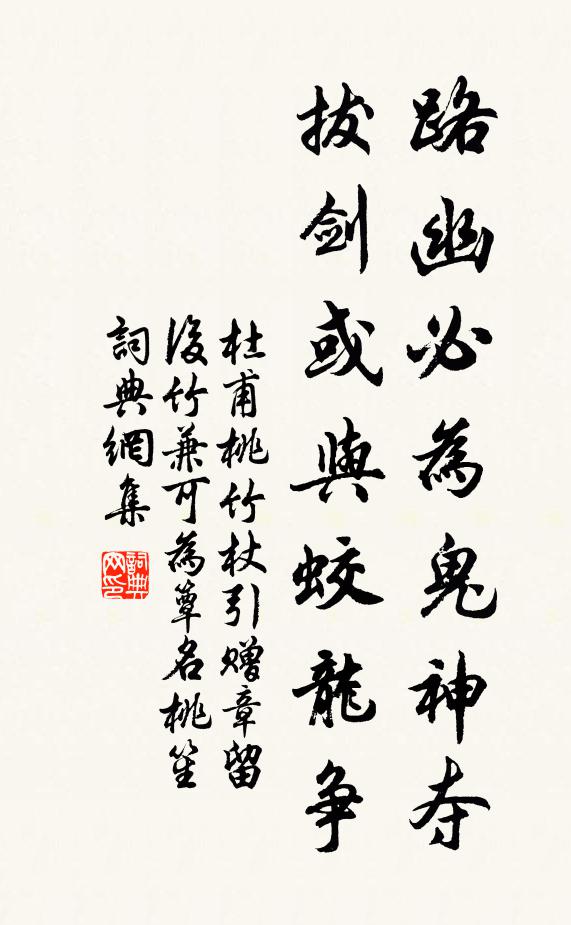 路幽必為鬼神夺
拔劍或與蛟龍争
杜甫桃竹杖引贈章留
後竹兼可為簟名桃笙
詞典網集
詞典
网印